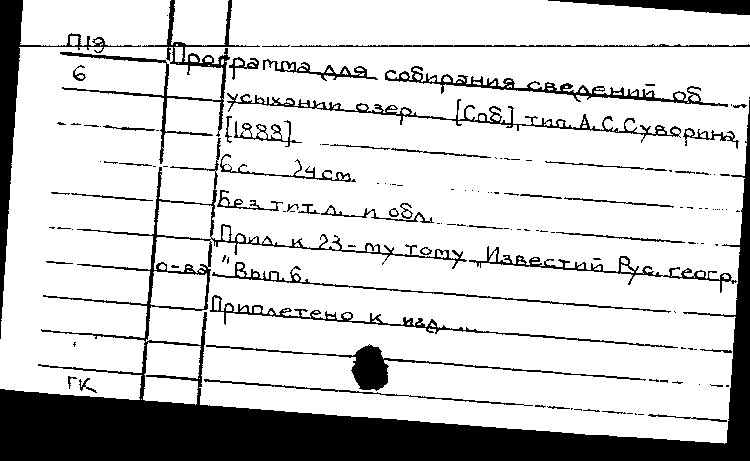 П19
6
Программа для собирания сведений об
усыхании озер. [Спб.], тип. А.С.Суворина,
[1888].
6 с. 24 см.
Без тит.л. и обл.
Прил. к 23-му тому „Известий Рус. геогр.
о-ва." Вып. 6.
Приплетено к изд. ...
ГК